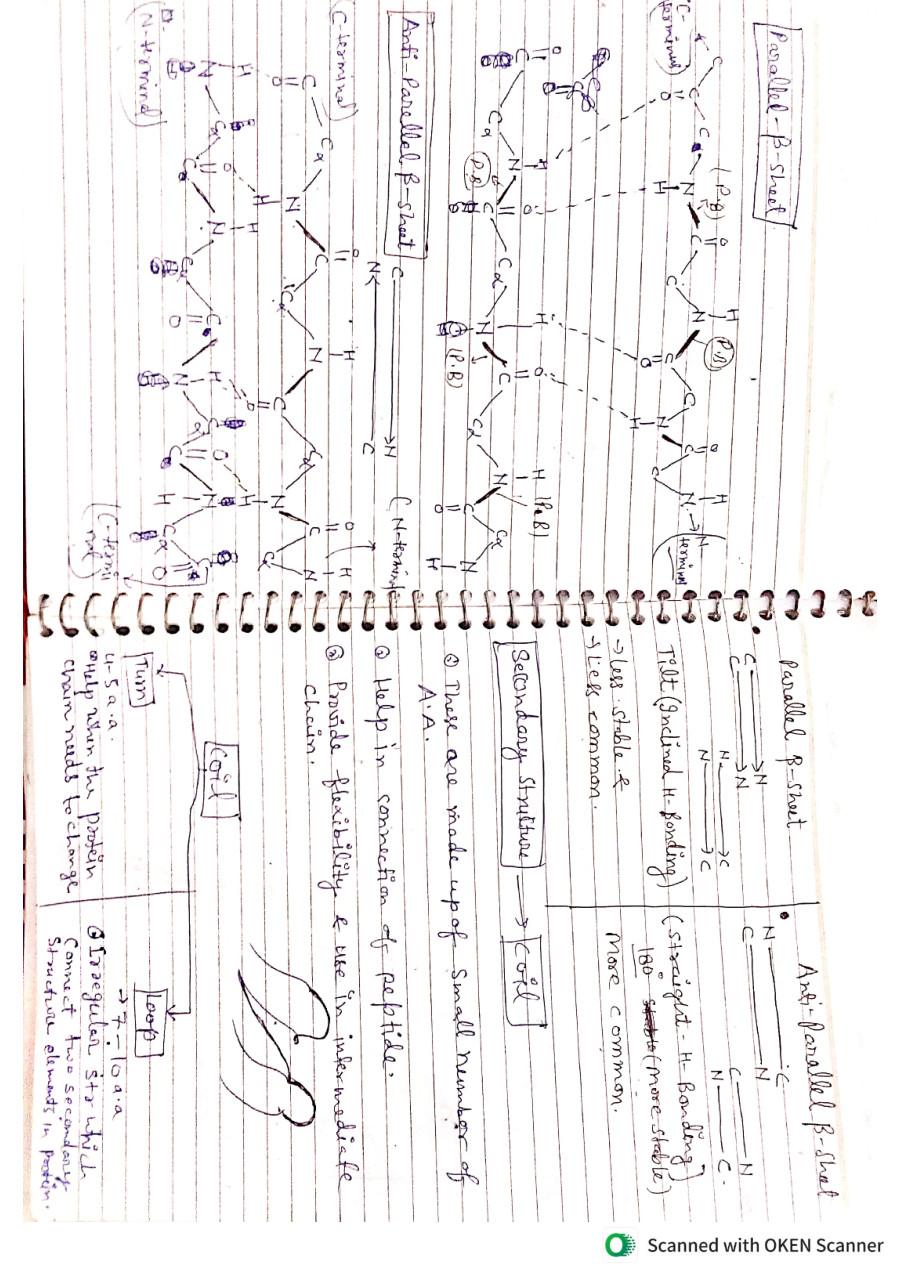 Parallel-β-sheet
C-
terminus)
C
C
C
O
N
H
(P.B)
C
O
C
N
H
P.B
C
O
C
N
H
C
O
C
N
H
→ N
terminal
O
C
Cα
N
H
P.B
C
O
Cα
N
H
(P.B)
C
O
Cα
N
H
(P.B)
C
O
Cα
N
H
Anti Parallel β-sheet
C
N
N
C
(C-terminal)
(N-terminal
C
O
Cα
N
H
C
O
Cα
N
H
C
O
Cα
N
H
C
O
Cα
N
H
N-terminal)
N
H
Cα
C
O
N
H
Cα
C
O
N
H
Cα
C
O
N
H
Cα
C
O
(C-termi
nal)
Parallel β-sheet
C
N
C
N
N
C
N
C
Tilt (Inclined H-Bonding)
→ less stable &
→ Less common.
Anti-parallel β-sheet
N
C
C
N
C
N
N
C
(straight-H-Bonding)
180° (more stable)
More common.
Secondary Struture → Coil
① These are made up of small number of
A.A.
② Help in connection of peptide.
③ Provide flexibility & use in intermediate
chain.
Coil
Turn
4-5 a.a.
Help when the protein
chain needs to change
loop
→ 7-10 a.a
Irregular str which
Connect two secondary
Structure elements in protein.
Scanned with OKEN Scanner